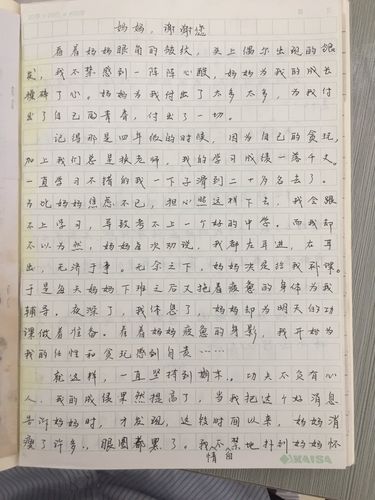 妈妈,谢谢您
看着妈妈眼角的皱纹,头上偶尔出现的银
发,我不禁感到一阵阵心酸,妈妈为我的成长
操碎了心。妈妈为我付出了太多太多,为我付
出了自己的青春,付出了一切。
记得那是四年级的时候,因为自己的贪玩,
加上我们总是换老师,我的学习成绩一落千丈,
一直学习不错的我一下子滑到二十几名去了。
为此妈妈焦虑不已,担心照这样下去,我会跟
不上学习,导致考不上一个好的中学。而我却
不以为然,妈妈每次劝说,我都左耳进,右耳
出,无济于事。无奈之下,妈妈决定给我补课。
于是每天妈妈下班之后又拖着疲惫的身体为我
辅导。夜深了,我休息了,妈妈却为明天的功
课做着准备。看着妈妈疲惫的身影,我开始为
我的任性和贪玩感到自责……
就这样,一直坚持到期末。功夫不负有心
人,我的成绩果然提高了,当我把这个好消息
告诉妈妈时,才发现,这段时间以来,妈妈消
瘦了许多,眼圈都黑了。我不禁地扑到妈妈怀
情 自
KAISA